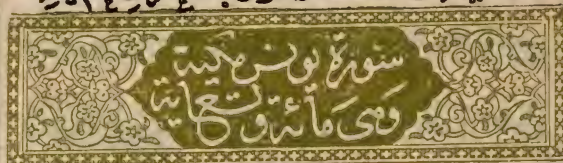 سورة يونس مكية
وهى مائة وتسع اية